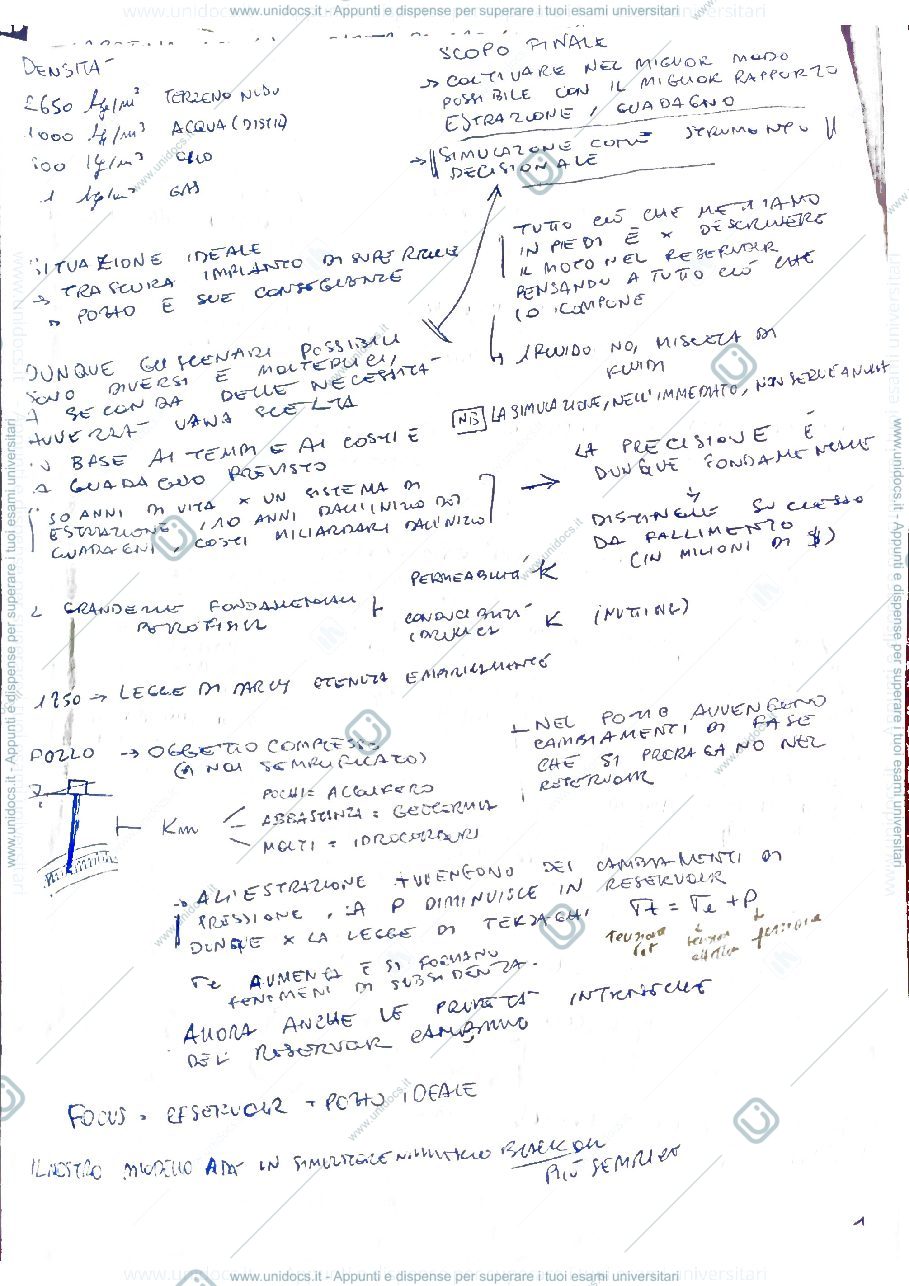 www.unidocs.it - Appunti e dispense per superare i tuoi esami universitari
DENSITÀ
2650 kg/m³ TERRENO NUDO
1000 kg/m³ ACQUA (DISTIL)
800 kg/m³ OLIO
1 kg/m³ GAS
SCOPO FINALE
→ COLTIVARE NEL MIGLIOR MODO
POSSIBILE CON IL MIGLIOR RAPPORTO
ESTRAZIONE / GUADAGNO
→ SIMULAZIONE COME STRUMENTO
DECISIONALE
SITUAZIONE IDEALE
→ TRASCURA IMPIANTO DI SUPERFICIE
→ POZZO E SUE CONSEGUENZE
TUTTO CIÒ CHE METTIAMO
IN PIEDI È x DESCRIVERE
IL MOTO NEL RESERVOIR
PENSANDO A TUTTO CIÒ CHE
LO COMPONE
↳ 1 FLUIDO NO, MISCELA DI
FLUIDI
DUNQUE GLI SCENARI POSSIBILI
SONO DIVERSI E MOLTEPLICI,
A SECONDA DELLE NECESSITÀ
AVVERRÀ UNA SCELTA
IN BASE AI TEMPI E AI COSTI E
A GUADAGNO PREVISTO
NB LA SIMULAZIONE, NELL'IMMEDIATO, NON SERVE A NULLA
[50 ANNI DI VITA x UN SISTEMA DI
ESTRAZIONE, 10 ANNI DALL'INIZIO DEI
GUADAGNI, COSTI MILIARDARI DALL'INIZIO]
→ LA PRECISIONE È
DUNQUE FONDAMENTALE
↓
DISTINGUE SUCCESSO
DA FALLIMENTO
(IN MILIONI DI $)
2 GRANDEZZE FONDAMENTALI
PETROFISICI
PERMEABILITÀ K
CONDUCIBILITÀ
IDRAULICA K (NUTTING)
→ LEGGE DI DARCY OTTENUTA EMPIRICAMENTE
POZZO → OGGETTO COMPLESSO
(A NOI SEMPLIFICATO)
Km
POCHI = ACQUIFERO
ABBASTANZA = GEOTERMIA
MOLTI = IDROCARBURI
NEL POZZO AVVENGONO
CAMBIAMENTI DI FASE
CHE SI PROPAGANO NEL
RESERVOIR
→ ALL'ESTRAZIONE AVVENGONO DEI CAMBIAMENTI DI
PRESSIONE, LA P DIMINUISCE IN RESERVOIR
DUNQUE x LA LEGGE DI TERZAGHI σt = σe + P
tensione tot
tensione effettiva
pressione
σe AUMENTA E SI FORMANO
FENOMENI DI SUBSIDENZA.
ALLORA ANCHE LE PROPRIETÀ INTRINSECHE
DEL RESERVOIR CAMBIANO
FOCUS = RESERVOIR + POZZO IDEALE
IL NOSTRO MODELLO BLACK OIL
PIÙ SEMPLICE
1
www.unidocs.it - Appunti e dispense per superare i tuoi esami universitari